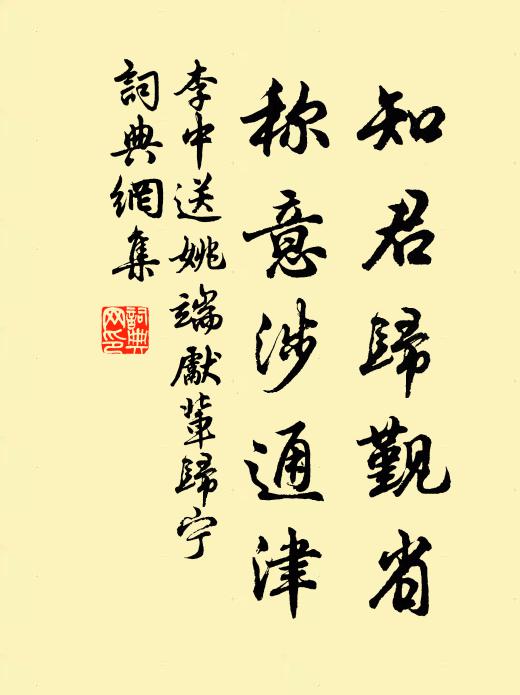 知君歸覲省
称意涉通津
李中送姚端獻輩歸宁
詞典網集
詞典网印